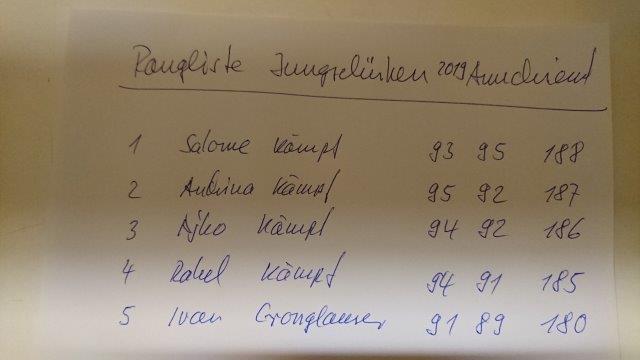 Rangliste Jungschützen 2019
1 Salome Kämpf 93 95 188
2 Andrina Kämpf 95 92 187
3 Ajko Kämpf 94 92 186
4 Rahel Kämpf 94 91 185
5 Ivan 91 89 180